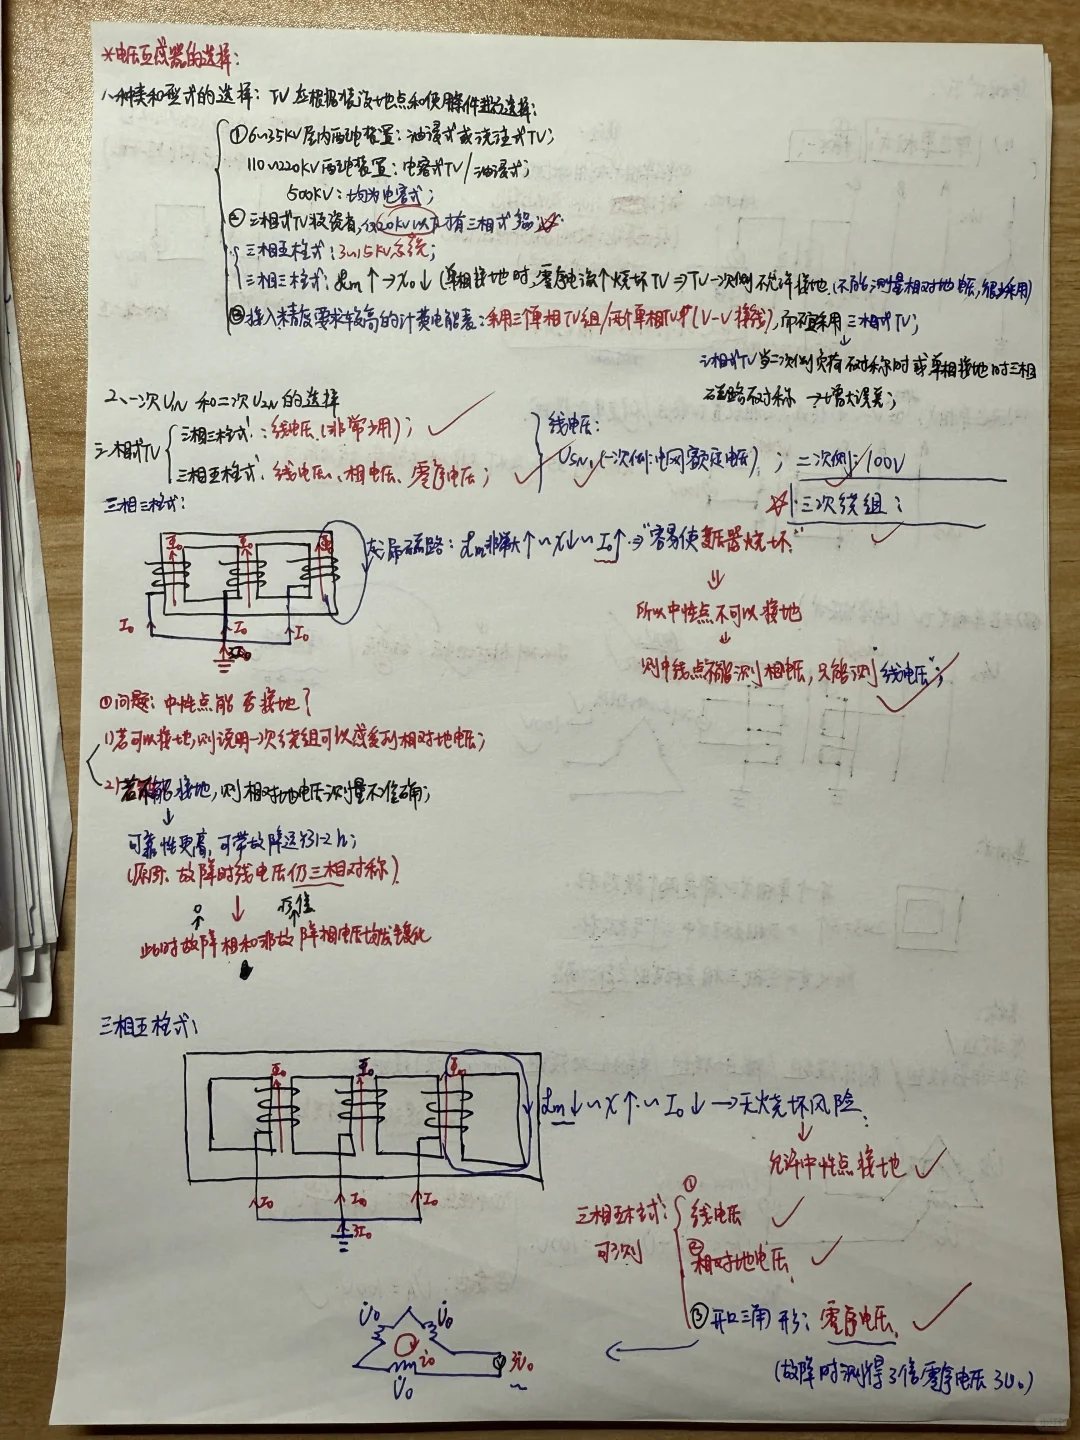 *电压互感器的选择:
1、种类和型式的选择: TV应根据装设地点和使用条件进行选择:
①6~35KV屋内配电装置: 油浸式或浇注式TV;
110~220KV配电装置: 电容式TV/油浸式;
500KV: 均为电容式;
②三相式TV投资省, 仅20KV以下才有三相式
三相五柱式: 3~15KV系统;
三相三柱式: Rm↑→X0↓(单相接地时, 零序电流↑烧坏TV⇒TV一次侧不允许接地.(不能测量相对地电压, 很少采用)
③接入精度要求较高的计费电能表: 采用三个单相TV组/两个单相TV(V-V接线), 而不宜采用三相式TV;
↓
三相式TV当二次侧负荷不对称时或单相接地时三相
磁路不对称 →增大误差;
2、一次U1N和二次U2N的选择
三相式TV
三相三柱式: 线电压.(非常少用);
三相五柱式: 线电压、相电压、零序电压;
线电压:
USN, (一次侧: 电网额定电压); 二次侧: 100V
三次绕组:
三相三柱式:
Φ0 Φ0 Φ0
I0 I0 I0
3I0
磁路: Rm非常大↑~X↓~I0↑→"容易使变压器烧坏."
⇓
所以中性点不可以接地
↓
则中线点不能测相电压, 只能测"线电压";
①问题: 中性点能否接地?
1)若可以接地, 则说明一次绕组可以感受到相对地电压;
2)若不能接地, 则相对地电压测量不准确;
↓
可靠性更高, 可带故障运行1-2h;
(原因: 故障时线电压仍三相对称).
0 ↑ ↓ √3倍 ↑
此时故障相和非故障相电压均发生变化
三相五柱式:
Φ0 Φ0 Φ0
I0 I0 I0
3I0
Rm↓~X↑~I0↓→无烧坏风险.
↓
允许中性点接地
三相五柱式:
可测
①线电压
②相对地电压.
③开口三角形: 零序电压.
(故障时测得3倍零序电压3U0)
U̇0 U̇0
i0
U̇0
3U̇0